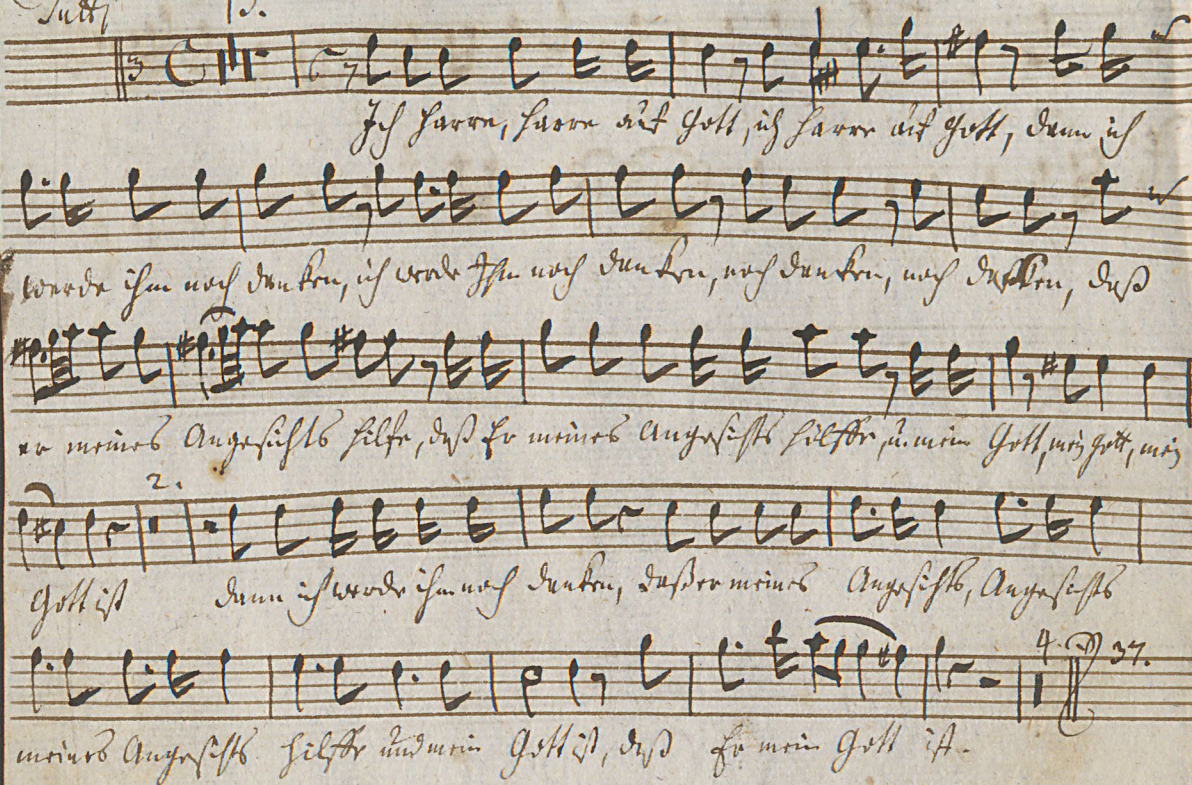 Tutti 13.
3
Ich harre, harre auf Gott, ich harre auf Gott, denn ich
werde ihm noch danken, ich werde Ihm noch danken, noch danken, noch danken, daß
er meines Angesichts hilfe, daß Er meines Angesichts hilffe, u. mein Gott, mein Gott, mein
2.
Gott ist dann ich werde ihm noch danken, daß er meines Angesichts, Angesichts
4. 37.
meines Angesichts hilffe und mein Gott ist, daß Er mein Gott ist.